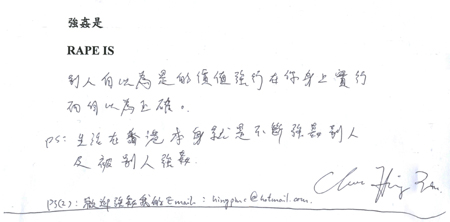 強姦是
RAPE IS
別人自以為是的價值強行在你身上實行
而自以為正確。
PS: 生活在香港本身就是不斷強姦別人
及被別人強姦.
PS(2): 強姦我的 Email: @hotmail.com.